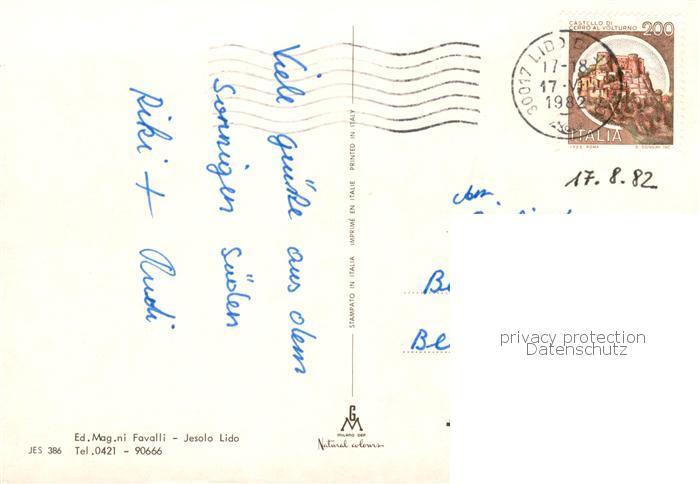 Viele grüße aus dem
Sonnigen Süden
Riki + Rudi
Ed. Mag.ni Favalli - Jesolo Lido
JES 386 Tel. 0421 - 90666
STAMPATO IN ITALIA IMPRIMÉ EN ITALIE PRINTED IN ITALY
GM
MILANO DEP.
Natural colours
30017 LIDO
17-18
17-
1982
CASTELLO DI
CERRO AL VOLTURNO
200
ITALIA
17.8.82
privacy protection
Datenschutz